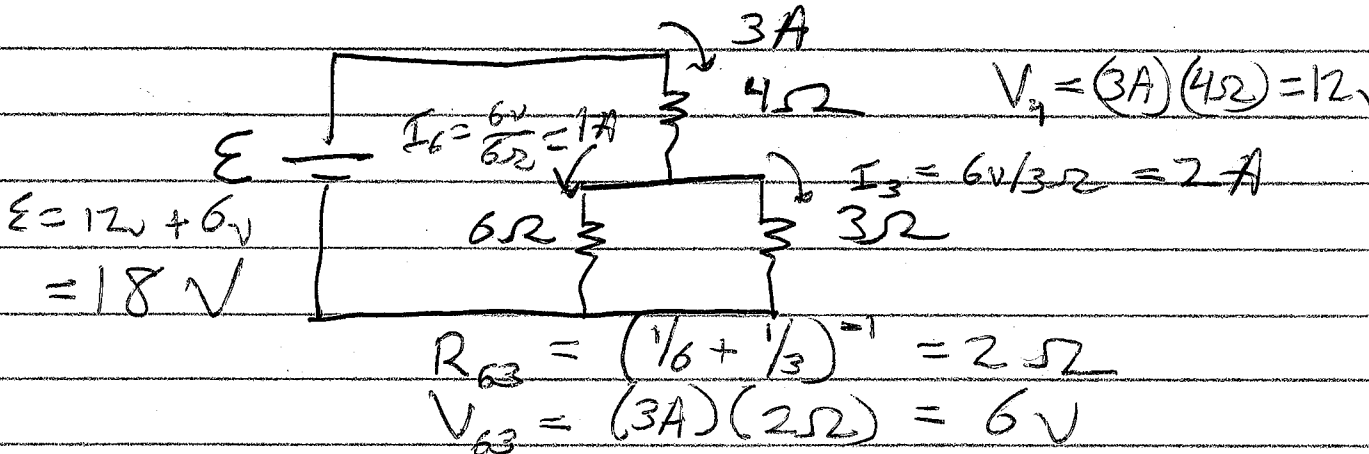 3A
4Ω
V₄ = (3A)(4Ω) = 12v
I₆ = 6v/6Ω = 1A
ℰ
I₃ = 6v/3Ω = 2A
ℰ = 12v + 6v
6Ω
3Ω
= 18 V
R₆₃ = (1/6 + 1/3)⁻¹ = 2Ω
V₆₃ = (3A)(2Ω) = 6v